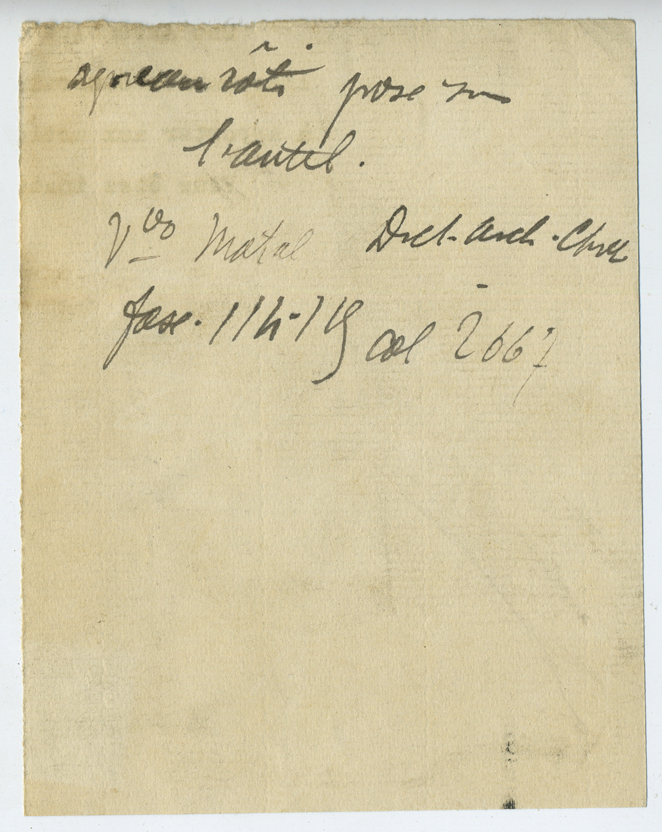 agneau rôti posé sur
l'autel.
Vdo Metal Dict. arch. Chrét
fasc. 114-119 col 2667